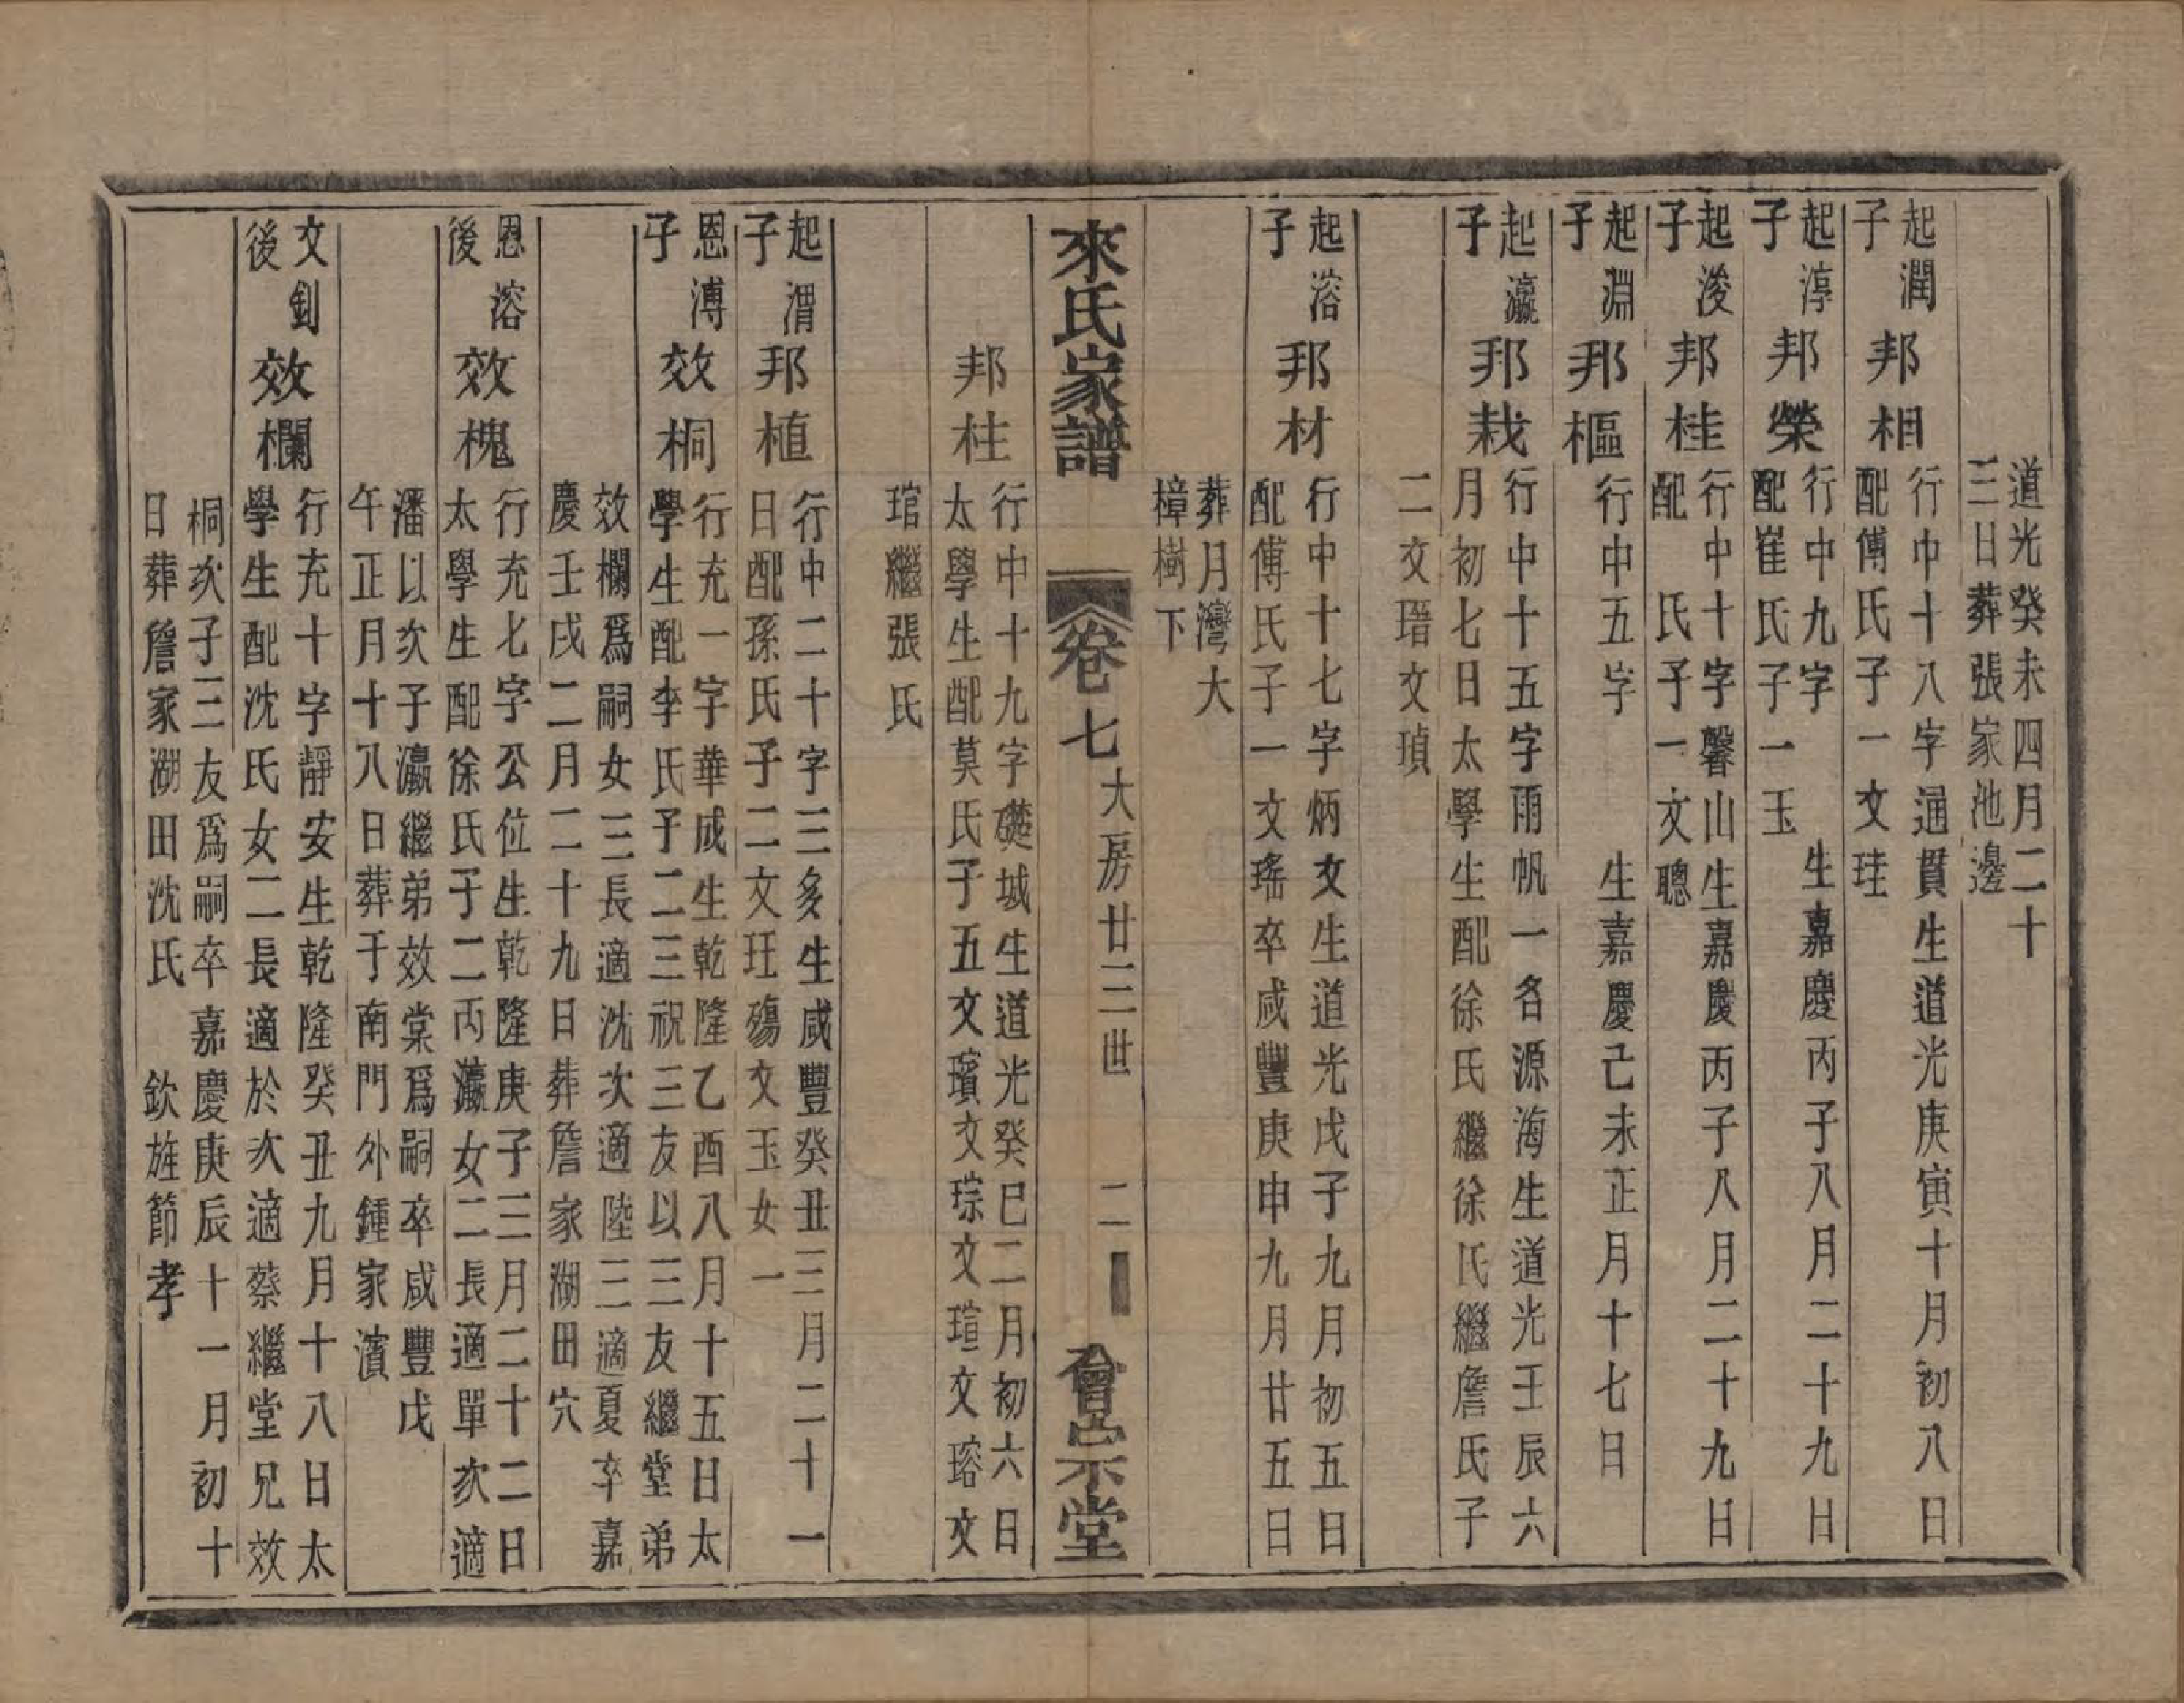 道光癸未四月二十
三日葬張家池邊
起潤
子
邦相
行中十八字通貫生道光庚寅十月初八日
配傅氏子一文珪
起淳
子
邦榮
行中九字 生嘉慶丙子八月二十九日
配崔氏子一玉
起浚
子
邦桂
行中十字馨山生嘉慶丙子八月二十九日
配 氏子一文聰
起淵
子
邦樞
行中五字 生嘉慶己未正月十七日
起瀛
子
邦栽
行中十五字雨帆一名源海生道光壬辰六
月初七日太學生配徐氏繼徐氏繼詹氏子
二文瑨文瑱
起溶
子
邦材
行中十七字炳文生道光戊子九月初五日
配傅氏子一文瑤卒咸豐庚申九月廿五日
葬月灣大
樟樹下
來氏家譜
卷七
大房廿三世
二
會宗堂
邦柱
行中十九字礎城生道光癸巳二月初六日
太學生配莫氏子五文璸文琮文瑄文瑢文
琯繼張氏
起渭
子
邦植
行中二十字三多生咸豐癸丑三月二十一
日配孫氏子二文玨殤文玉女一
恩溥
子
效桐
行充一字華成生乾隆乙酉八月十五日太
學生配李氏子二三祝三友以三友繼堂弟
效欄爲嗣女三長適沈次適陸三適夏卒嘉
慶壬戌二月二十九日葬詹家湖田穴
恩溶
後
效槐
行充七字公位生乾隆庚子三月二十二日
太學生配徐氏子二丙瀛女二長適單次適
潘以次子瀛繼弟效棠爲嗣卒咸豐戊
午正月十八日葬于南門外鍾家濱
文釗
後
效欄
行充十字靜安生乾隆癸丑九月十八日太
學生配沈氏女二長適於次適蔡繼堂兄效
桐次子三友爲嗣卒嘉慶庚辰十一月初十
日葬詹家湖田沈氏 欽旌節孝